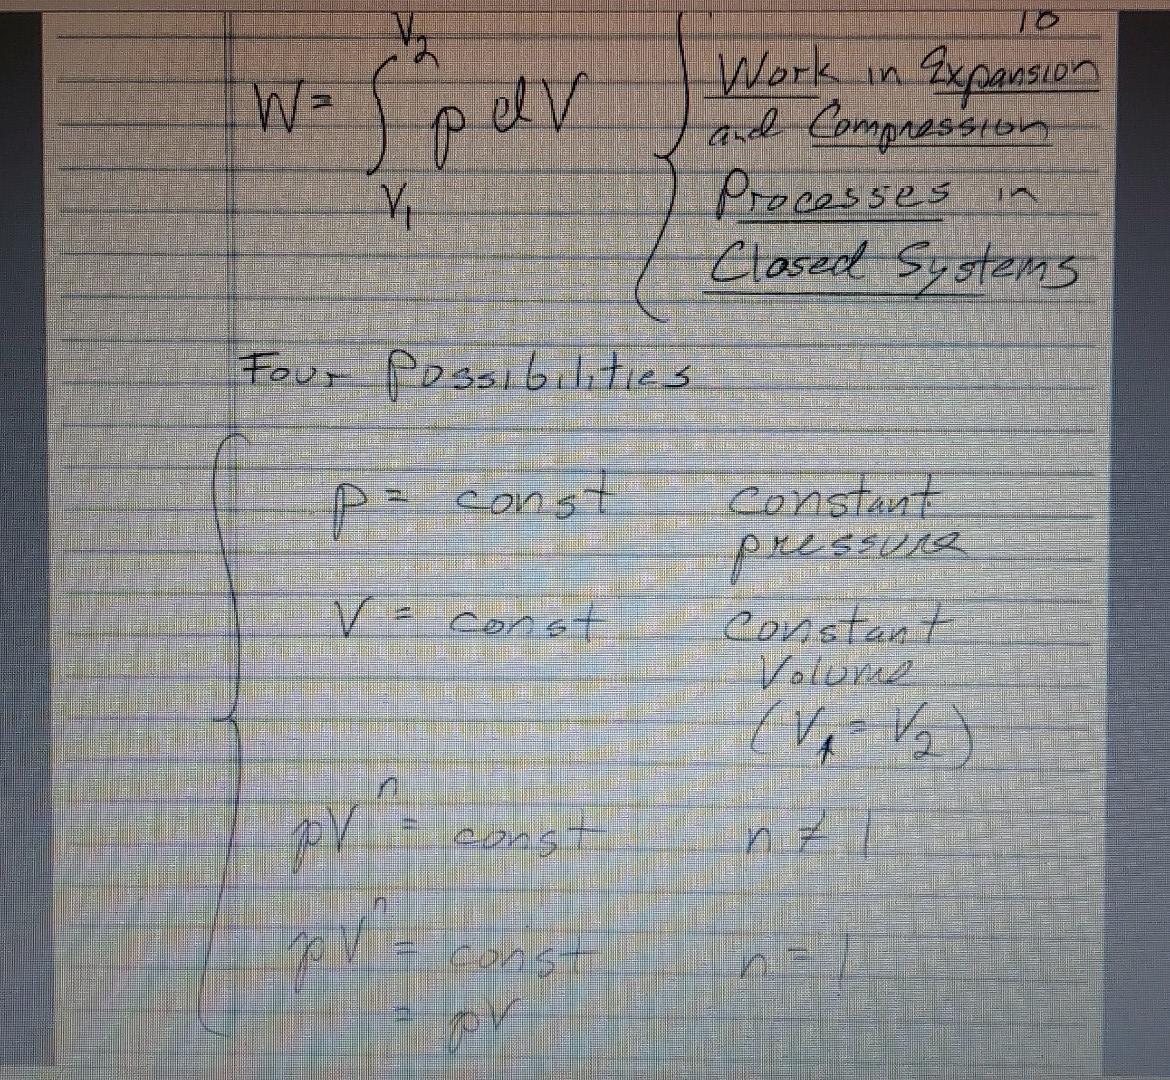 10
W = ∫ p dV
V₂
V₁
Work in Expansion
and Compression
Processes in
Closed Systems
Four Possibilities
p = const constant
pressure
V = const constant
Volume
(V₁ = V₂)
pVⁿ = const n ≠ 1
pVⁿ = const n = 1
= pV